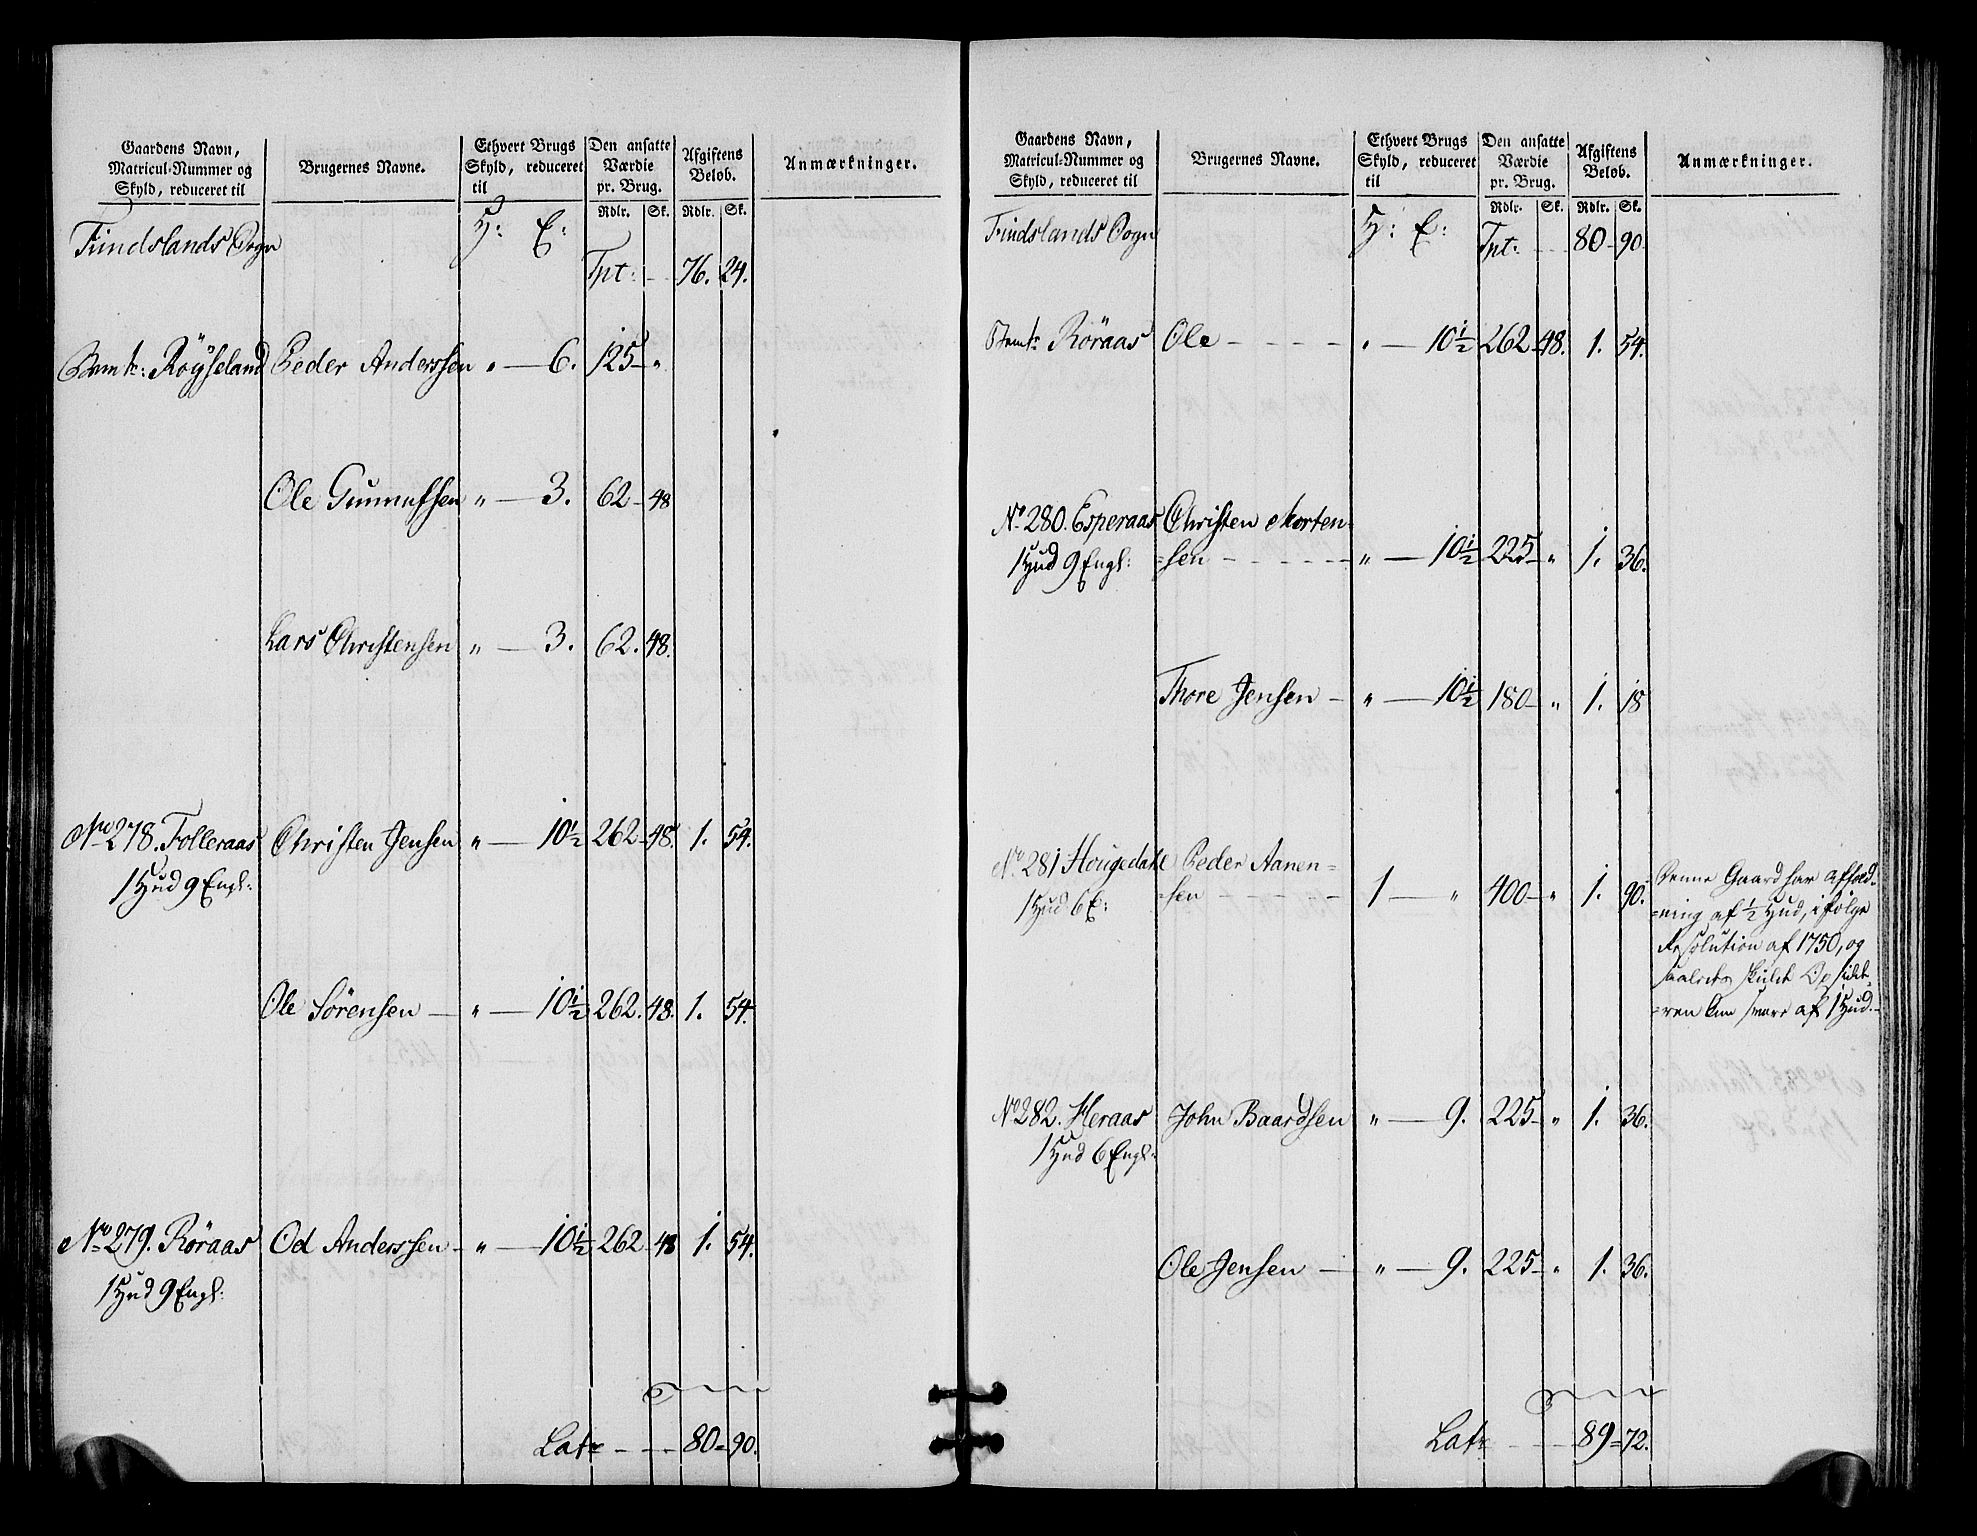 Gaardens Navn, Matricul-Nummer og Skyld, reduceret til | Brugernes Navne. | Ethvert Brugs Skyld, reduceret til | Den ansatte Værdie pr. Brug. | Afgiftens Beløb. | Anmærkninger.
Rdlr. Sk. Rdlr. Sk.
Findslands Sogn H: E:
Tpt: - - 76. 24.
Røyseland Peder Anderssen " — 6. 125 - "
Ole Gunnufsen " — 3. 62 - 48
Lars Christensen " — 3. 62. 48.
No 278. Folleraas Christen Jensen " — 10½ 262 - 48. 1. 54.
1 Hud 9 Engl:
Ole Sørensen — " — 10½ 262. 48. 1. 54.
No 279. Røraas Od Anderssen - " — 10½ 262 - 48 1. 54.
1 Hud 9 Engl:
Lats - - - 80 = 90.
Gaardens Navn, Matricul-Nummer og Skyld, reduceret til | Brugernes Navne. | Ethvert Brugs Skyld, reduceret til | Den ansatte Værdie pr. Brug. | Afgiftens Beløb. | Anmærkninger.
Rdlr. Sk. Rdlr. Sk.
Findslands Sogn H: E: Tpt: - - 80 - 90.
Røraas Ole - - - - - " — 10½ 262 - 48. 1. 54.
No 280. Esperaas Christen Morten-
1 Hud 9 Engl: =sen - - - - - " — 10½ 225 - " 1. 36.
Thore Jensen - " — 10½ 180 - " 1. 18
No 281 Hougedahl Peder Aanen-
1 Hud 6 E: =sen - - - - - 1 — " 400 - " 1. 90.
Denne Gaard har affæld-
=ning af ½ Hud, ifølge
Resolution af 1750, og
saaledes skulde Opsidde-
=ren kun svare af 1 Hud.-
No 282. Heraas John Baardsen " — 9. 225 - " 1. 36.
1 Hud 6 Engl:
Ole Jensen — " — 9. 225 - " 1. 36.
Lats - - - 89 = 72.